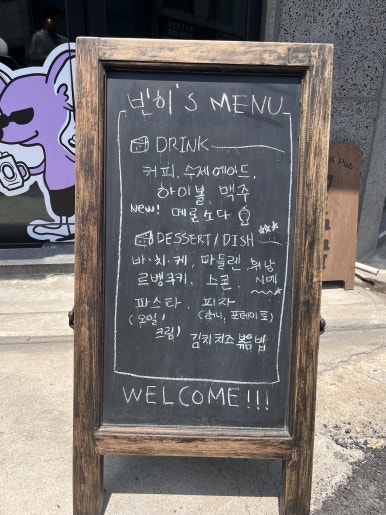 빈히's MENU
DRINK
커피, 수제에이드,
하이볼, 맥주
New! 메론소다
DESSERT/DISH
바·치·케, 마들렌, 휘낭
르뱅쿠키, 스콘, N예
파스타, 피자
(오일/ 크림) (포테이토)
김치치즈볶음밥
WELCOME!!!
Pub